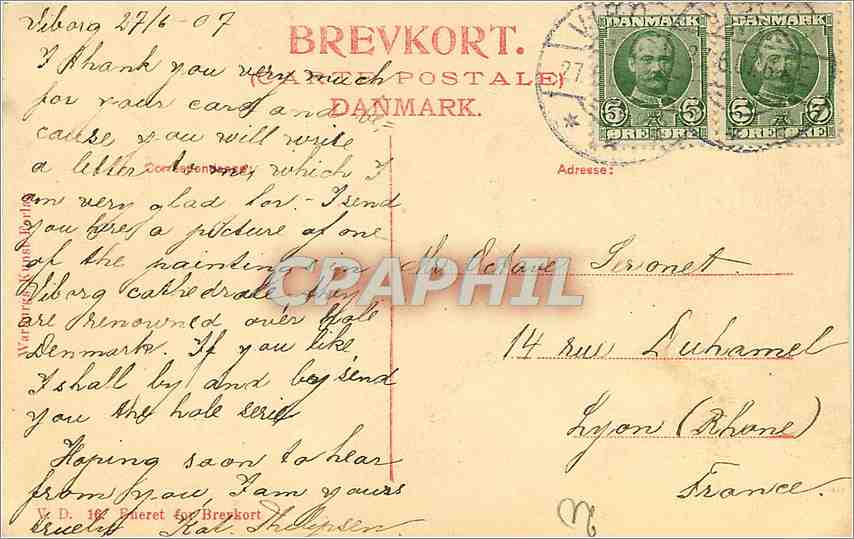 Viborg 27/6 - 07
BREVKORT.
(CARTE POSTALE)
DANMARK.
DANMARK
5 5
ØRE ØRE
DANMARK
5 5
ØRE ØRE
I thank you very much
for your card and be=
cause you will write
a letter to me, which I
am very glad for. - I send
you here a picture of one
of the paintings in
Viborg cathedrale they
are renowned over hole
Denmark. If you like
I shall by and by send
you the hole serie
Hoping soon to hear
from you, I am yours
truely Kat. Philipsen.
Correspondance:
Adresse:
Mr Octave Seronet.
14 rue Duhamel
Lyon (Rhone)
France.
Warburgs Kunst-Forlag
V. D. 16. Eneret for Brevkort
CPAPHIL